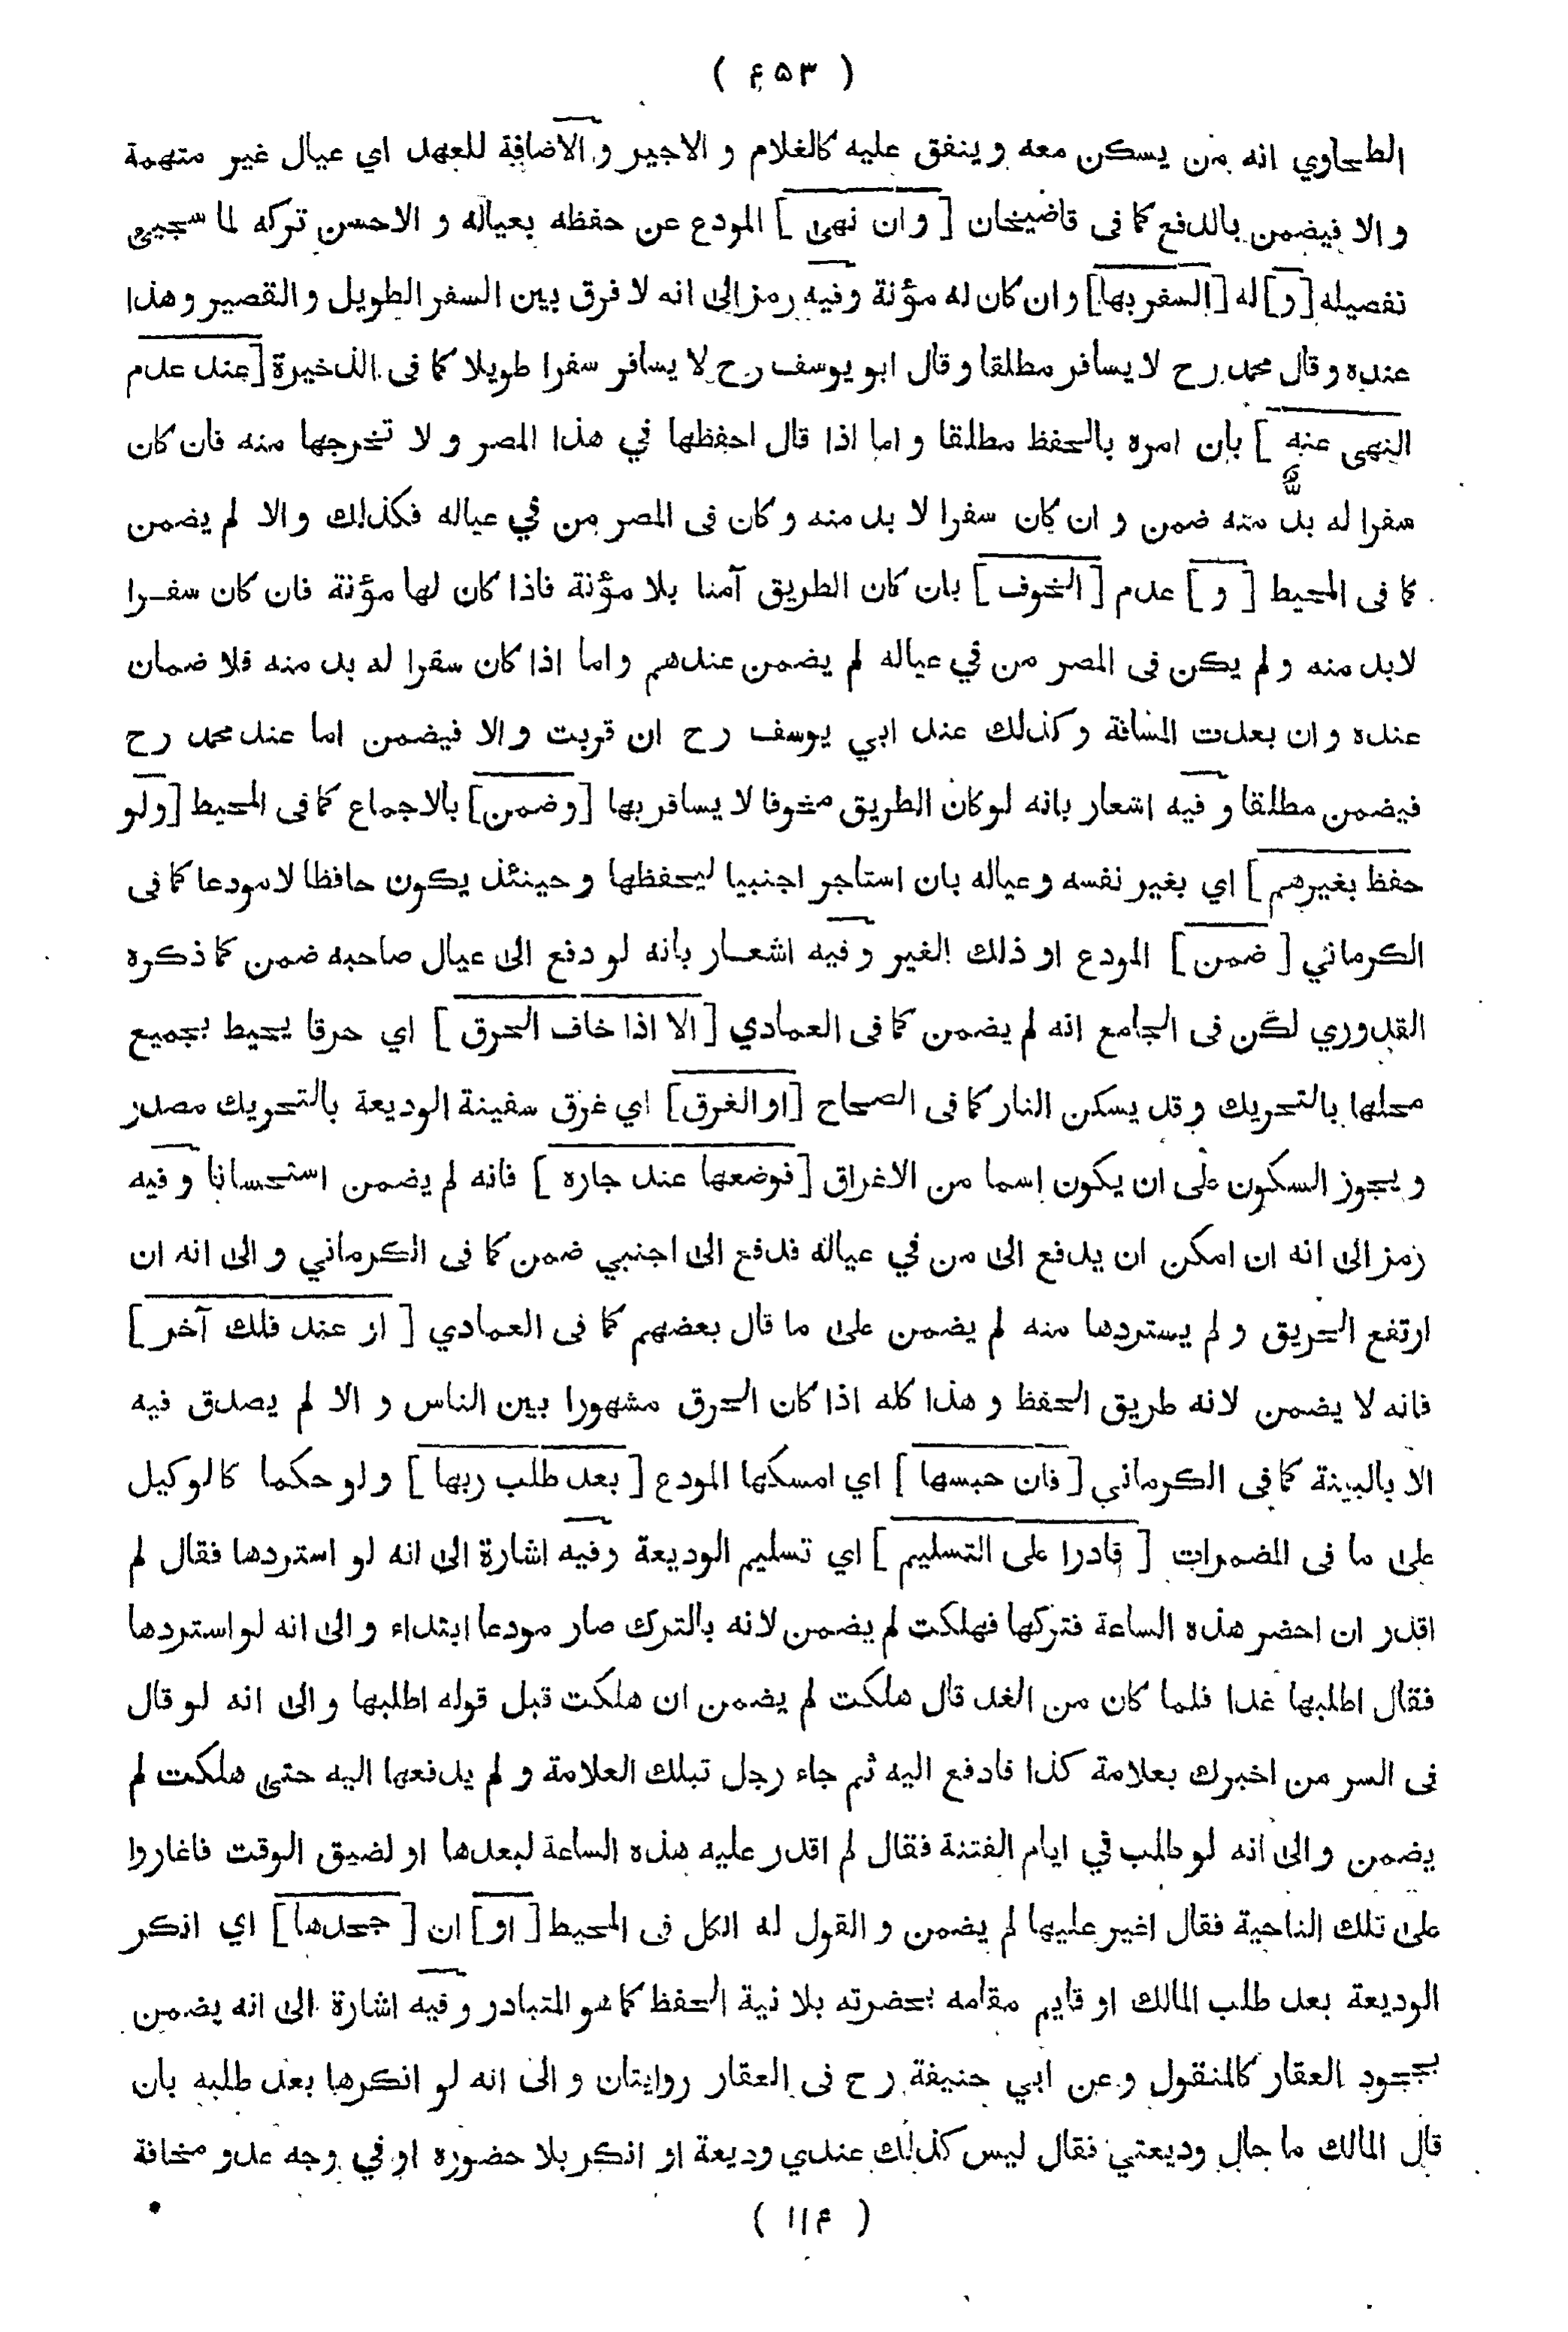 ( ۴۵۳ )
الطحاوي انه من يسكن معه وينفق عليه كالغلام و الاجير و الاضافة للعهد اي عيال غير متهمة
و الا فيضمن بالدفع كما فى قاضيخان [ و ان نهى ] المودع عن حفظه بعياله و الاحسن تركه لما سجيئ
تفصيله [و] له [السفر بها] و ان كان له مؤنة وفيه رمز الى انه لا فرق بين السفر الطويل و القصير و هذا
عنده و قال محمد رح لا يسافر مطلقا و قال ابو يوسف رح لا يسافر سفرا طويلا كما فى الذخيرة [عند عدم
النهى عنه ] بان امره بالحفظ مطلقا و اما اذا قال احفظها في هذا المصر و لا تخرجها منه فان كان
سفرا له بد منه ضمن و ان كان سفرا لا بد منه و كان فى المصر من في عياله فكذلك و الا لم يضمن
كما فى المحيط [ و ] عدم [ الخوف ] بان كان الطريق آمنا بلا مؤنة فاذا كان لها مؤنة فان كان سفرا
لابد منه و لم يكن فى المصر من في عياله لم يضمن عندهم و اما اذا كان سفرا له بد منه فلا ضمان
عنده و ان بعدت المسافة و كذلك عند ابي يوسف رح ان قربت و الا فيضمن اما عند محمد رح
فيضمن مطلقا و فيه اشعار بانه لو كان الطريق مخوفا لا يسافر بها [و ضمن] بالاجماع كما فى المحيط [ولو
حفظ بغيرهم ] اي بغير نفسه و عياله بان استاجر اجنبيا ليحفظها و حينئذ يكون حافظا لا مودعا كما فى
الكرماني [ ضمن ] المودع او ذلك الغير و فيه اشعار بانه لو دفع الى عيال صاحبه ضمن كما ذكره
القدوري لكن فى الجامع انه لم يضمن كما فى العمادي [ الا اذا خاف الحرق ] اي حرقا يحيط بجميع
محلها بالتحريك و قد يسكن النار كما فى الصحاح [او الغرق] اي غرق سفينة الوديعة بالتحريك مصدر
و يجوز السكون على ان يكون اسما من الاغراق [فوضعها عند جاره ] فانه لم يضمن استحسانا و فيه
رمز الى انه ان امكن ان يدفع الى من في عياله فدفع الى اجنبي ضمن كما فى الكرماني و الى انه ان
ارتفع الحريق و لم يستردها منه لم يضمن على ما قال بعضهم كما فى العمادي [ او عند فلك آخر ]
فانه لا يضمن لانه طريق الحفظ و هذا كله اذا كان الحرق مشهورا بين الناس و الا لم يصدق فيه
الا بالبينة كما فى الكرماني [ فان حبسها ] اي امسكها المودع [ بعد طلب ربها ] و لو حكما كالوكيل
على ما فى المضمرات [ قادرا على التسليم ] اي تسليم الوديعة وفيه اشارة الى انه لو استردها فقال لم
اقدر ان احضر هذه الساعة فتركها فهلكت لم يضمن لانه بالترك صار مودعا ابتداء و الى انه لو استردها
فقال اطلبها غدا فلما كان من الغد قال هلكت لم يضمن ان هلكت قبل قوله اطلبها و الى انه لو قال
فى السر من اخبرك بعلامة كذا فادفع اليه ثم جاء رجل تبلك العلامة و لم يدفعها اليه حتى هلكت لم
يضمن و الى انه لو طلب في ايام الفتنة فقال لم اقدر عليه هذه الساعة لبعدها او لضيق الوقت فاغاروا
على تلك الناحية فقال اغير عليها لم يضمن و القول له الكل فى المحيط [ او ] ان [ جحدها ] اي انكر
الوديعة بعد طلب المالك او قايم مقامه بحضرته بلا نية الحفظ كما هو المتبادر و فيه اشارة الى انه يضمن
بجحود العقار كالمنقول و عن ابي حنيفة رح فى العقار روايتان و الى انه لو انكرها بعد طلبه بان
قال المالك ما حال وديعتي فقال ليس كذلك عندي وديعة او انكر بلا حضوره او في وجه عدو مخافة
( ۱۱۴ )